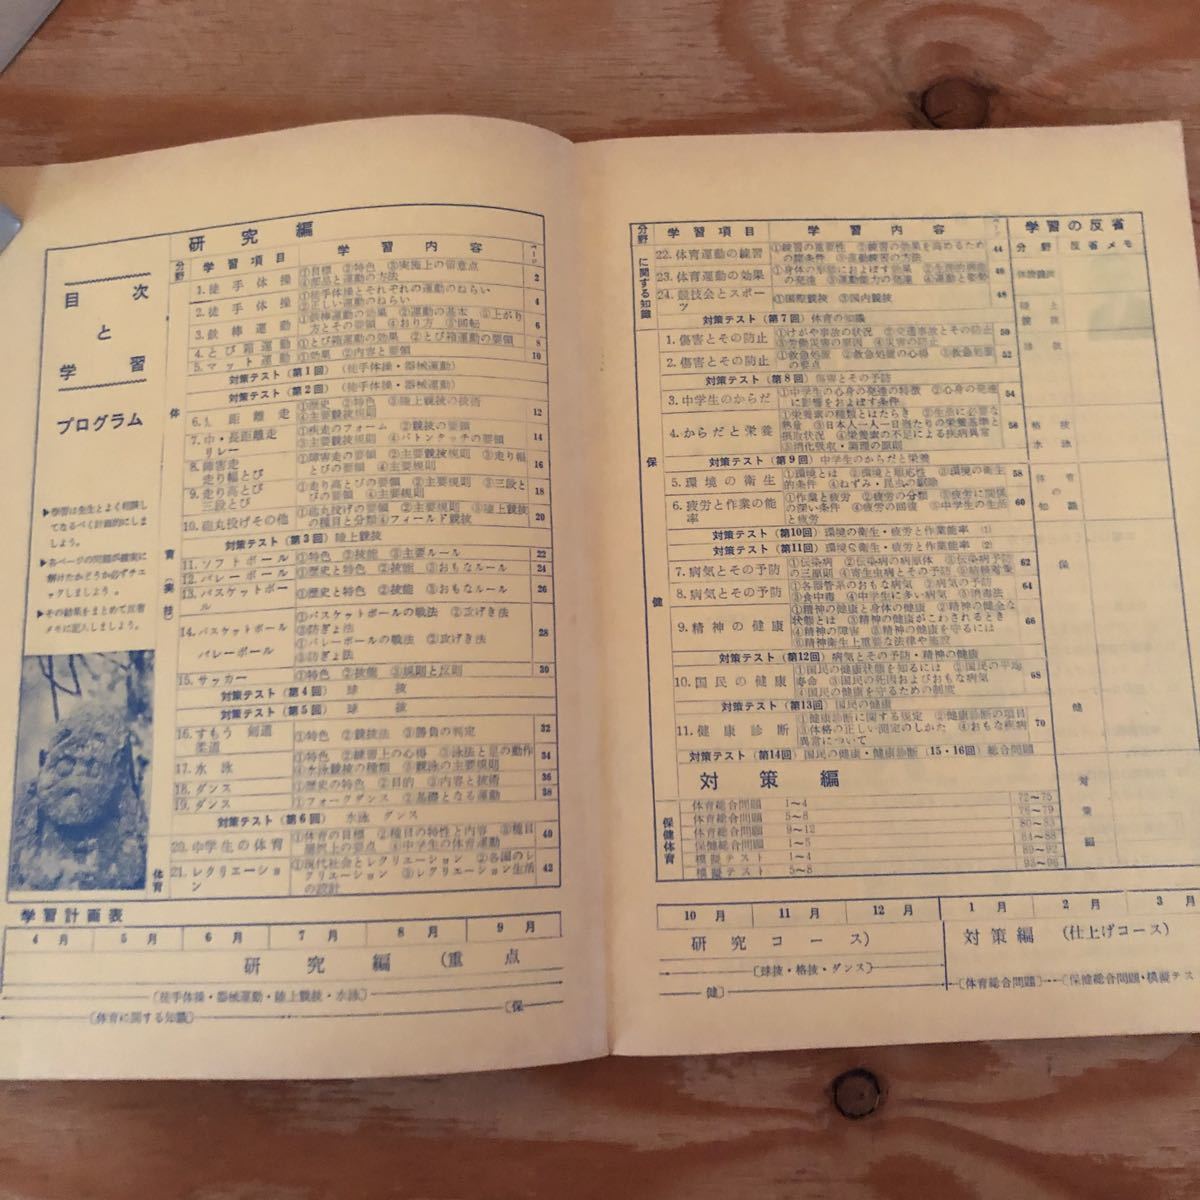 目次
と
学習
プログラム
▶学習は先生とよく相談し
てなるべく計画的にしま
しよう。
▶各ページの問題が確実に
解けたかどうか必ずチエ
ックしましよう。
▶その結果をまとめて反省
メモに記入しましよう。
研究編
分野 学習項目 学習内容 ページ
体育(実技)
1. 徒手体操 ①目標 ②特色 ③実施上の留意点
④部品と運動の方法 2
2. 徒手体操 ①徒手体操とそれぞれの運動のねらい
②正しい運動のねらい 4
3. 鉄棒運動 ①鉄棒運動の効果 ②運動の基本 ③上がり
方とその要領 ④おり方 ⑤回転 6
4. とび箱運動 ①とび箱運動の効果 ②とび箱運動の要領 8
5. マット運動 ①効果 ②内容と要領 10
対策テスト(第1回) (徒手体操・器械運動)
対策テスト(第2回) (徒手体操・器械運動)
距離走 ①歴史 ②特色 ③陸上競技の技術
④主要競技規則 12
7. 中・長距離走
リレー ①疾走のフォーム ②競技の要領
③主要競技規則 ④バトンタッチの要領 14
8. 障害走
走り幅とび ①障害走の要領 ②主要競技規則 ③走り幅
とびの要領 ④主要規則 16
9. 走り高とび
三段とび ①走り高とびの要領 ②主要規則 ③三段と
びの要領 ④主要規則 18
10. 砲丸投げその他 ①砲丸投げの要領 ②主要規則 ③陸上競技
の種目と分類 ④フィールド競技 20
対策テスト(第3回) 陸上競技
11. ソフトボール ①特色 ②技能 ③主要ルール 22
12. バレーボール ①歴史と特色 ②技能 ③おもなルール 24
13. バスケットボー
ル ①歴史と特色 ②技能 ③おもなルール 26
14. バスケットボール ①バスケットボールの戦法 ②攻げき法
③防ぎょ法
バレーボール ①バレーボールの戦法 ②攻げき法
③防ぎょ法 28
15. サッカー ①特色 ②技能 ③規則と反則 30
対策テスト(第4回) 球技
対策テスト(第5回) 球技
16. すもう 剣道
柔道 ①特色 ②競技法 ③勝負の判定 32
17. 水泳 ①特色 ②練習上の心得 ③泳法と足の動作
④水泳競技の種類 ⑤競泳の主要規則 34
18. ダンス ①歴史の特色 ②目的 ③内容と技術 36
19. ダンス ①フォークダンス ②基礎となる運動 38
対策テスト(第6回) 水泳 ダンス
体育
20. 中学生の体育 ①体育の目標 ②種目の特性と内容 ③種目
選択上の要点 ④中学生の体育運動 40
21. レクリエーショ
ン ①現代社会とレクリエーション ②各国のレ
クリエーション ③レクリエーション生活
の設計 42
学習計画表
4月 5月 6月 7月 8月 9月
研究編(重点
〔徒手体操・器械運動・陸上競技・水泳〕
〔体育に関する知識〕 〔保
分野 学習項目 学習内容 ページ
に関する知識
22. 体育運動の練習 ①練習の重要性 ②練習の効果を高めるため
の諸条件 ③運動練習の方法 44
23. 体育運動の効果 ①身体の形態におよぼす効果 ②生理的機能
の発達 ③運動能力の効果 ④運動と姿勢 46
24. 競技会とスポー
ツ ①国際競技 ②国内競技 48
対策テスト(第7回) 体育の知識
保健
1. 傷害とその防止 ①けがや事故の状況 ②交通事故とその防止
③労働災害の原因 ④災害の防止 50
2. 傷害とその防止 ①救急処置 ②救急処置の心得 ③救急処置
の要点 52
対策テスト(第8回) 傷害とその予防
3. 中学生のからだ ①中学生の心身の発達の特徴 ②心身の発達
に影響をおよぼす条件 54
4. からだと栄養 ①栄養素の種類とはたらき ②生活に必要な
熱量 ③日本人一人一日当たりの栄養基準と
摂取状況 ④栄養素の不足による疾病異常
⑤消化吸収・調理の原則 56
対策テスト(第9回) 中学生のからだと栄養
5. 環境の衛生 ①環境とは ②環境と順応性 ③環境の衛生
的条件 ④ねずみ・昆虫の駆除 58
6. 疲労と作業の能
率 ①作業と疲労 ②疲労の分類 ③疲労に関係
の深い条件 ④疲労の回復 ⑤中学生の生活 60
対策テスト(第10回) 環境の衛生・疲労と作業能率 (1)
対策テスト(第11回) 環境の衛生・疲労と作業能率 (2)
7. 病気とその予防 ①伝染病 ②伝染病の病原体 ③伝染病予防
の三原則 ④寄生虫病とその予防 ⑤病精毒 62
8. 病気とその予防 ①各器管系のおもな病気 ②病気の予防
③食中毒 ④中学生に多い病気 ⑤消毒法 64
9. 精神の健康 ①精神の健康と身体の健康 ②精神の健全な
状態とは ③精神の健康がこわされるとき
④精神の障害 ⑤精神の健康を守るには
⑥精神衛生上重要な法律や施設 66
対策テスト(第12回) 病気とその予防・精神の健康
10. 国民の健康 ①国民の健康状態を知るには ②国民の平均
寿命 ③国民の死因およびおもな病気
④国民の健康を守るための制度 68
対策テスト(第13回) 国民の健康
11. 健康診断 ①健康診断に関する規定 ②健康診断の項目
③体格の正しい測定のしかた ④おもな疾病
異常について 70
対策テスト(第14回) 国民の健康・健康診断 (15・16回) 総合問題
対策編
保健体育
体育総合問題 1〜4 72〜75
体育総合問題 5〜8 76〜79
体育総合問題 9〜12 80〜83
保健総合問題 1〜5 84〜88
模擬テスト 1〜4 89〜92
模擬テスト 5〜8 93〜96
学習の反省
分野 反省メモ
陸上
競技
球技
格技
水泳
体育
の
知識
保
健
対
策
編
10月 11月 12月 1月 2月 3月
研究コース) 対策編 (仕上げコース)
〔球技・格技・ダンス〕
健〕 〔体育総合問題〕 〔保健総合問題・模擬テス